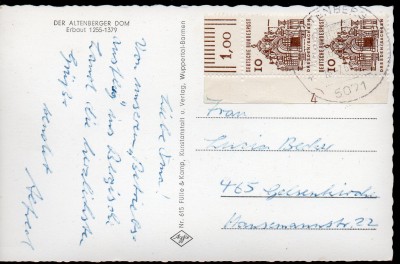 DER ALTENBERGER DOM
Erbaut 1255-1379
Liebe Oma!
Von unserem Betriebs-
ausflug ins Bergische
Land die herzlichsten
Grüße
Nr. 615 Fülle & Komp., Kunstanstalt u. Verlag, Wuppertal-Barmen
1,00
DEUTSCHE BUNDESPOST
10
DEUTSCHE BUNDESPOST
10
5071
Frau
Luzia
465 Gelsenkirchen
Hansemannstr. 22